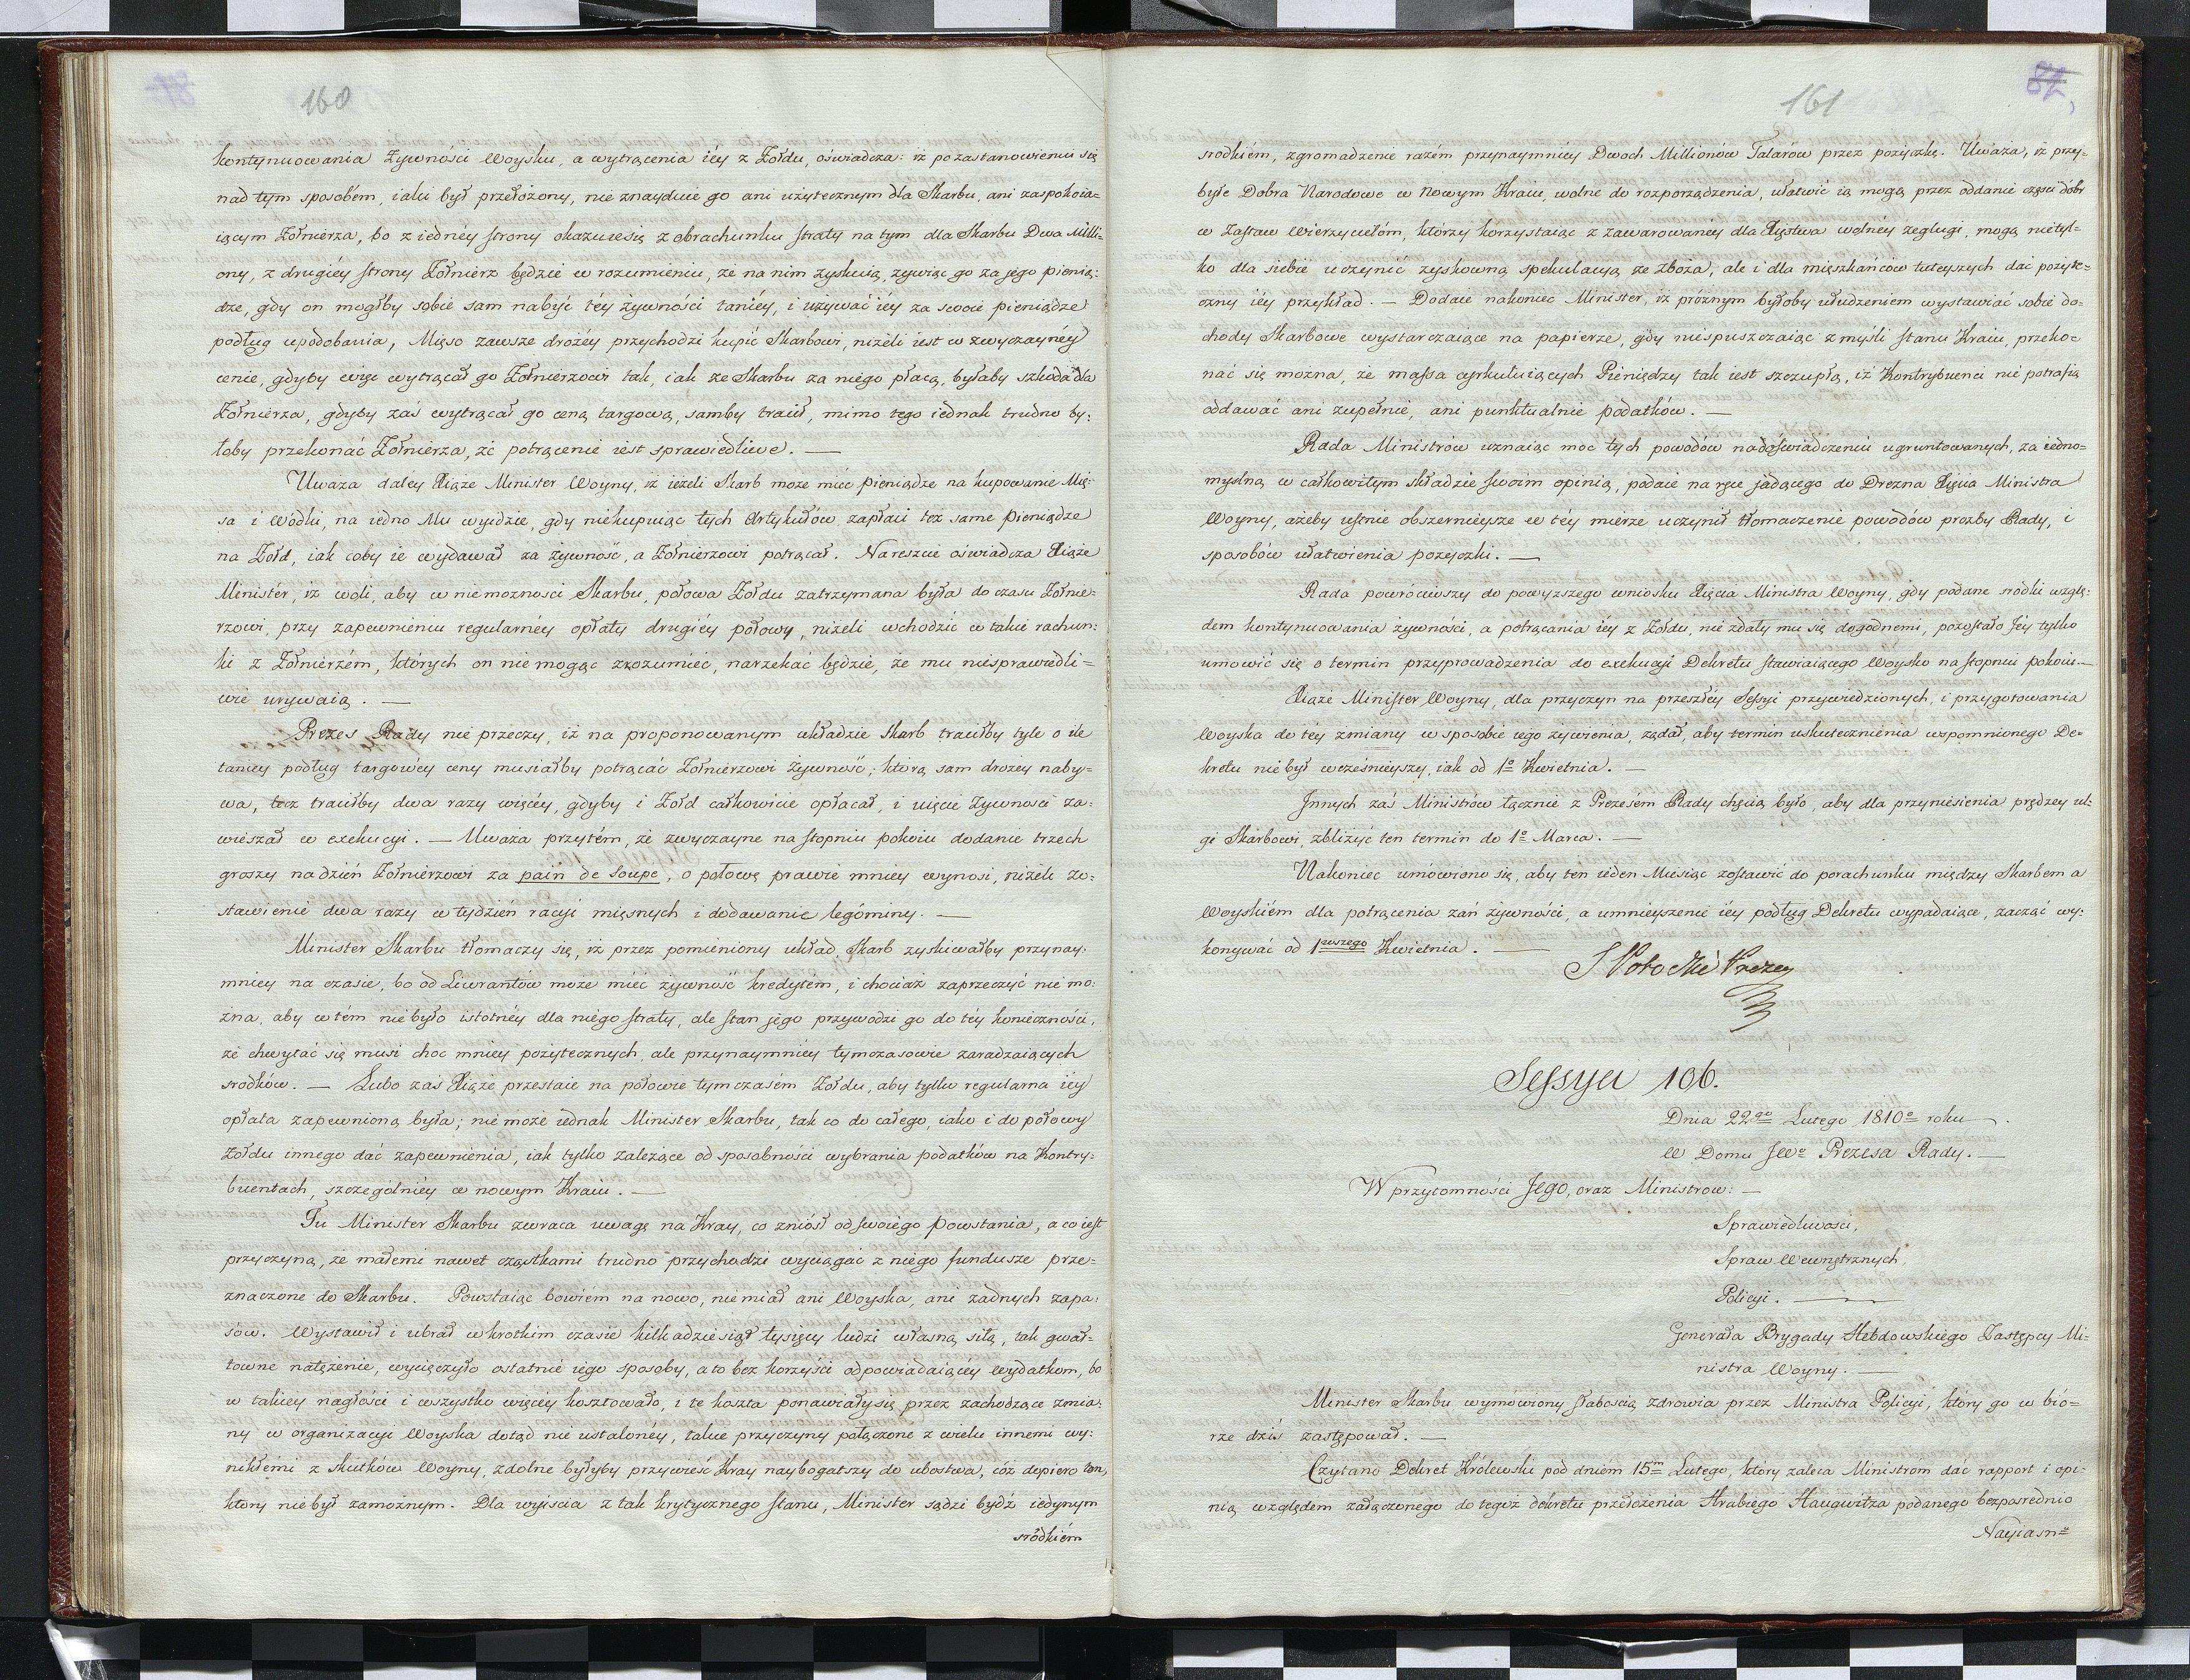 160
kontynuowania Żywności Woysku, a wytrącenia iéy z Żołdu, oświadcza: iż po zastanowieniu się
nad tym sposobém, iaki był przełożony, nie znayduie go ani użytecznym dla Skarbu, ani zaspokoia=
iącym Żołnierza, bo z iednéy strony okazuie się z obrachunku straty na tym dla Skarbu Dwa Milli=
ony, z drugiéy strony Żołnierz będzie w rozumieniu, że na nim zyskuią, żywiąc go za jégo pienią:
dze, gdy on mogłby sobie sam nabyć téy żywności taniéy, i używać iéy za swoie pieniądze
podług upodobania, Mięso zawsze drożéy przychodzi kupić Skarbowi, niżeli iest w zwyczaynéy
cenie, gdyby więc wytrącał go Żołnierzowi tak, iak ze Skarbu za niego płacą, byłaby szkoda dla
Żołnierza, gdyby zaś wytrącał go ceną targową, samby tracił, mimo tego iednak trudno by:
łoby przekonać Żołnierza, że potrącenie iest sprawiedliwe. —
Uważa daley Xiąże Minister Woyny, iż ieżeli Skarb może miéc pieniądze na kupowanie Mię:
sa i Wódki, na iedno Mu wyidzie, gdy niekupuiąc tych Artykułów, zapłaci też same Pieniądze
na Żołd, iak coby ie wydawał za żywność, a Żołnierzowi potrącał. Nareszcie oświadcza Xiąże
Ministér, iż woli, aby w niemożności Skarbu, połowa Żołdu zatrzymana była do czasu Żołnie=
rzowi, przy zapewnieniu regularnéy opłaty drugiéy połowy, niżeli wchodzić w takie rachun:
ki z Żołnierzém, których on nie mogąc zrozumiéć, narzekać będzie, że mu niesprawiedli=
wie urywaią. —
Prezes Rady nie przeczy, iż na proponowanym układzie Skarb traciłby tyle o ile
taniey podług targowéy ceny musiałby potrącać Żołnierzowi Żywność, którą sam drożey naby=
wa, lecz traciłby dwa razy więcéy, gdyby i Żołd całkowicie opłacał, i uięcie Żywności za:
wieszał w exekucyi. — Uważa przytém, że zwyczayne na stopniu pokoiu dodanie trzech
groszy na dzień Żołnierzowi za pain de Soupe, o połowę prawie mniey wynosi, niżeli zo:
stawienie dwa razy w tydzień racyi mięsnych i dodawanie legóminy. —
Minister Skarbu tłomaczy się, iż przez pomieniony układ, Skarb zyskiwałby przynay:
mniey na czasie, bo od Liwrantów może miéć żywność kredytém, i chociaż zaprzeczyć nie mo:
żna, aby w tem nie było istotnéy dla niego straty, ale stan jégo przywodzi go do téy konieczności,
że chwytać się musi choc mniey pożytecznych, ale przynaymniéy tymczasowie zaradzaiących
srodków. — Lubo zaś Xiąże przestaie na połowie tymczasém Żołdu, aby tylko regularna iéy
opłata zapewnioną była; nie może iednak Minister Skarbu, tak co do całego, iako i do połowy
Żołdu innego dać zapewnienia, iak tylko zależące od sposobności wybrania podatków na Kontry:
buentach, szczególniéy w nowym Kraiu. —
Tu Minister Skarbu zwraca uwagę na Kray, co zniósł od swoiégo powstania, a co iest
przyczyną, że małemi nawet cząstkami trudno przychodzi wyciągać z niego fundusze prze=
znaczone do Skarbu. Powstaiąc bowiém na nowo, niemiał ani Woyska, ani żadnych zapa:
sów. Wystawił i ubrał wkrotkim czasie kilkadziesiąt tysięcy ludzi własną siłą, tak gwał=
towne natężenie, wycięczyło ostatnie iego sposoby, a to bez korzyści odpowiadaiącéy wydatkom, bo
w takiey nagłości i wszystko więcéy kosztowało, i te koszta ponawiały się przez zachodzące zmia:
ny w organizacyi Woyska dotąd nie ustalonéy, takie przyczyny połączone z wielu innemi wy:
nikłémi z skutków Woyny, zdolne byłyby przywieść Kray naybogatszy do ubostwa, cóż dopiero ten,
który niebył zamożnym. Dla wyiscia z tak krytycznego stanu, Minister sądzi bydź iedynym
sródkiém
161
srodkiém, zgromadzenie razém przynaymniéy Dwoch Millionów Talarów przez pożyczkę. Uważa, iż przy=
byłe Dobra Narodowe w Nowym Kraiu, wolne do rozporządzenia, ułatwić ią mogą przez oddanie części dóbr
w Zastaw Wierzycielóm, którzy korzystaiąc z zawarowanéy dla Xięstwa wolnéy żeglugi, mogą nietyl=
ko dla siebie uczynić zyskowną spekulacyą ze zboża, ale i dla mięszkańców tuteyszych dać pożyte=
czny iéy przykład. — Dodaie nakoniec Minister, iż próżnym byłoby ułudzeniem wystawiać sobie do=
chody Skarbowe wystarczaiące na papierze, gdy niespuszczaiąc z myśli stanu Kraiu, przeko=
nać się można, że massa cyrkuluiących Pieniędzy tak iest szczupłą, iż Kontrybuenci nie potrafią
oddawać ani zupełnie, ani punktualnie podatków. —
Rada Ministrów uznaiąc moc tych powodów na doświadczeniu ugruntowanych, za iedno=
myślną w całkowitym składzie swoim opinią, podaie na ręce jadącego do Drezna Xięcia Ministra
Woyny, ażeby ustnie obszernieysze w téy mierze uczynił tłomaczenie powodów prozby Rady, i
sposobów ułatwienia pożyczki. —
Rada powróciwszy do powyższego wniosku Xięcia Ministra Woyny, gdy podane srodki wzglę:
dem kontynuowania żywności, a potrącania iey z Żołdu, nie zdały mu się dogodnemi, pozostało Jéy tylko
umowić się o termin przyprowadzenia do exekucyi Dekretu stawiaiącego Woysko na stopniu pokoiu. —
Xiąże Minister Woyny, dla przyczyn na przeszłéy Sessyi przywiedzionych, i przygotowania
Woyska do téy zmiany w sposobie iego żywienia, żądał, aby termin uskutecznienia wspomnionego De=
kretu niebył wcześnieyszy, iak od 1o Kwietnia. —
Jnnych zaś Ministrów łącznie z Prezesém Rady chęcią było, aby dla przyniesienia prędzey ul:
gi Skarbowi, zbliżyć ten termin do 1o Marca. —
Nakoniec umówiono się, aby ten ieden Miesiąc zostawić do porachunku między Skarbem a
Woyskiém dla potrącenia zań żywności, a umnieyszenie iéy podług Dekretu wypadaiące, zacząć wy:
konywać od 1wszego Kwietnia. —
S Potocki Prezes
Sessya 106.
Dnia 22go Lutego 1810o roku.
W Domu JWo Prezesa Rady. —
W przytomności Jego, oraz Ministrów: —
Sprawiedliwości,
Spraw Wewnętrznych,
Policyi. —
Generała Brygady Hebdowskiego Zastępcy Mi=
nistra Woyny. —
Minister Skarbu wymówiony słabością zdrowia przez Ministra Policyi, który go w bió=
rze dziś zastępował. —
Czytano Dekret Królewski pod dniém 15m Lutego, który zaleca Ministróm dać rapport i opi=
nią względem załączonego do tegoż dekretu przełożenia Hrabiego Haugwitza podanego bezpośrednio
Nayiasn=